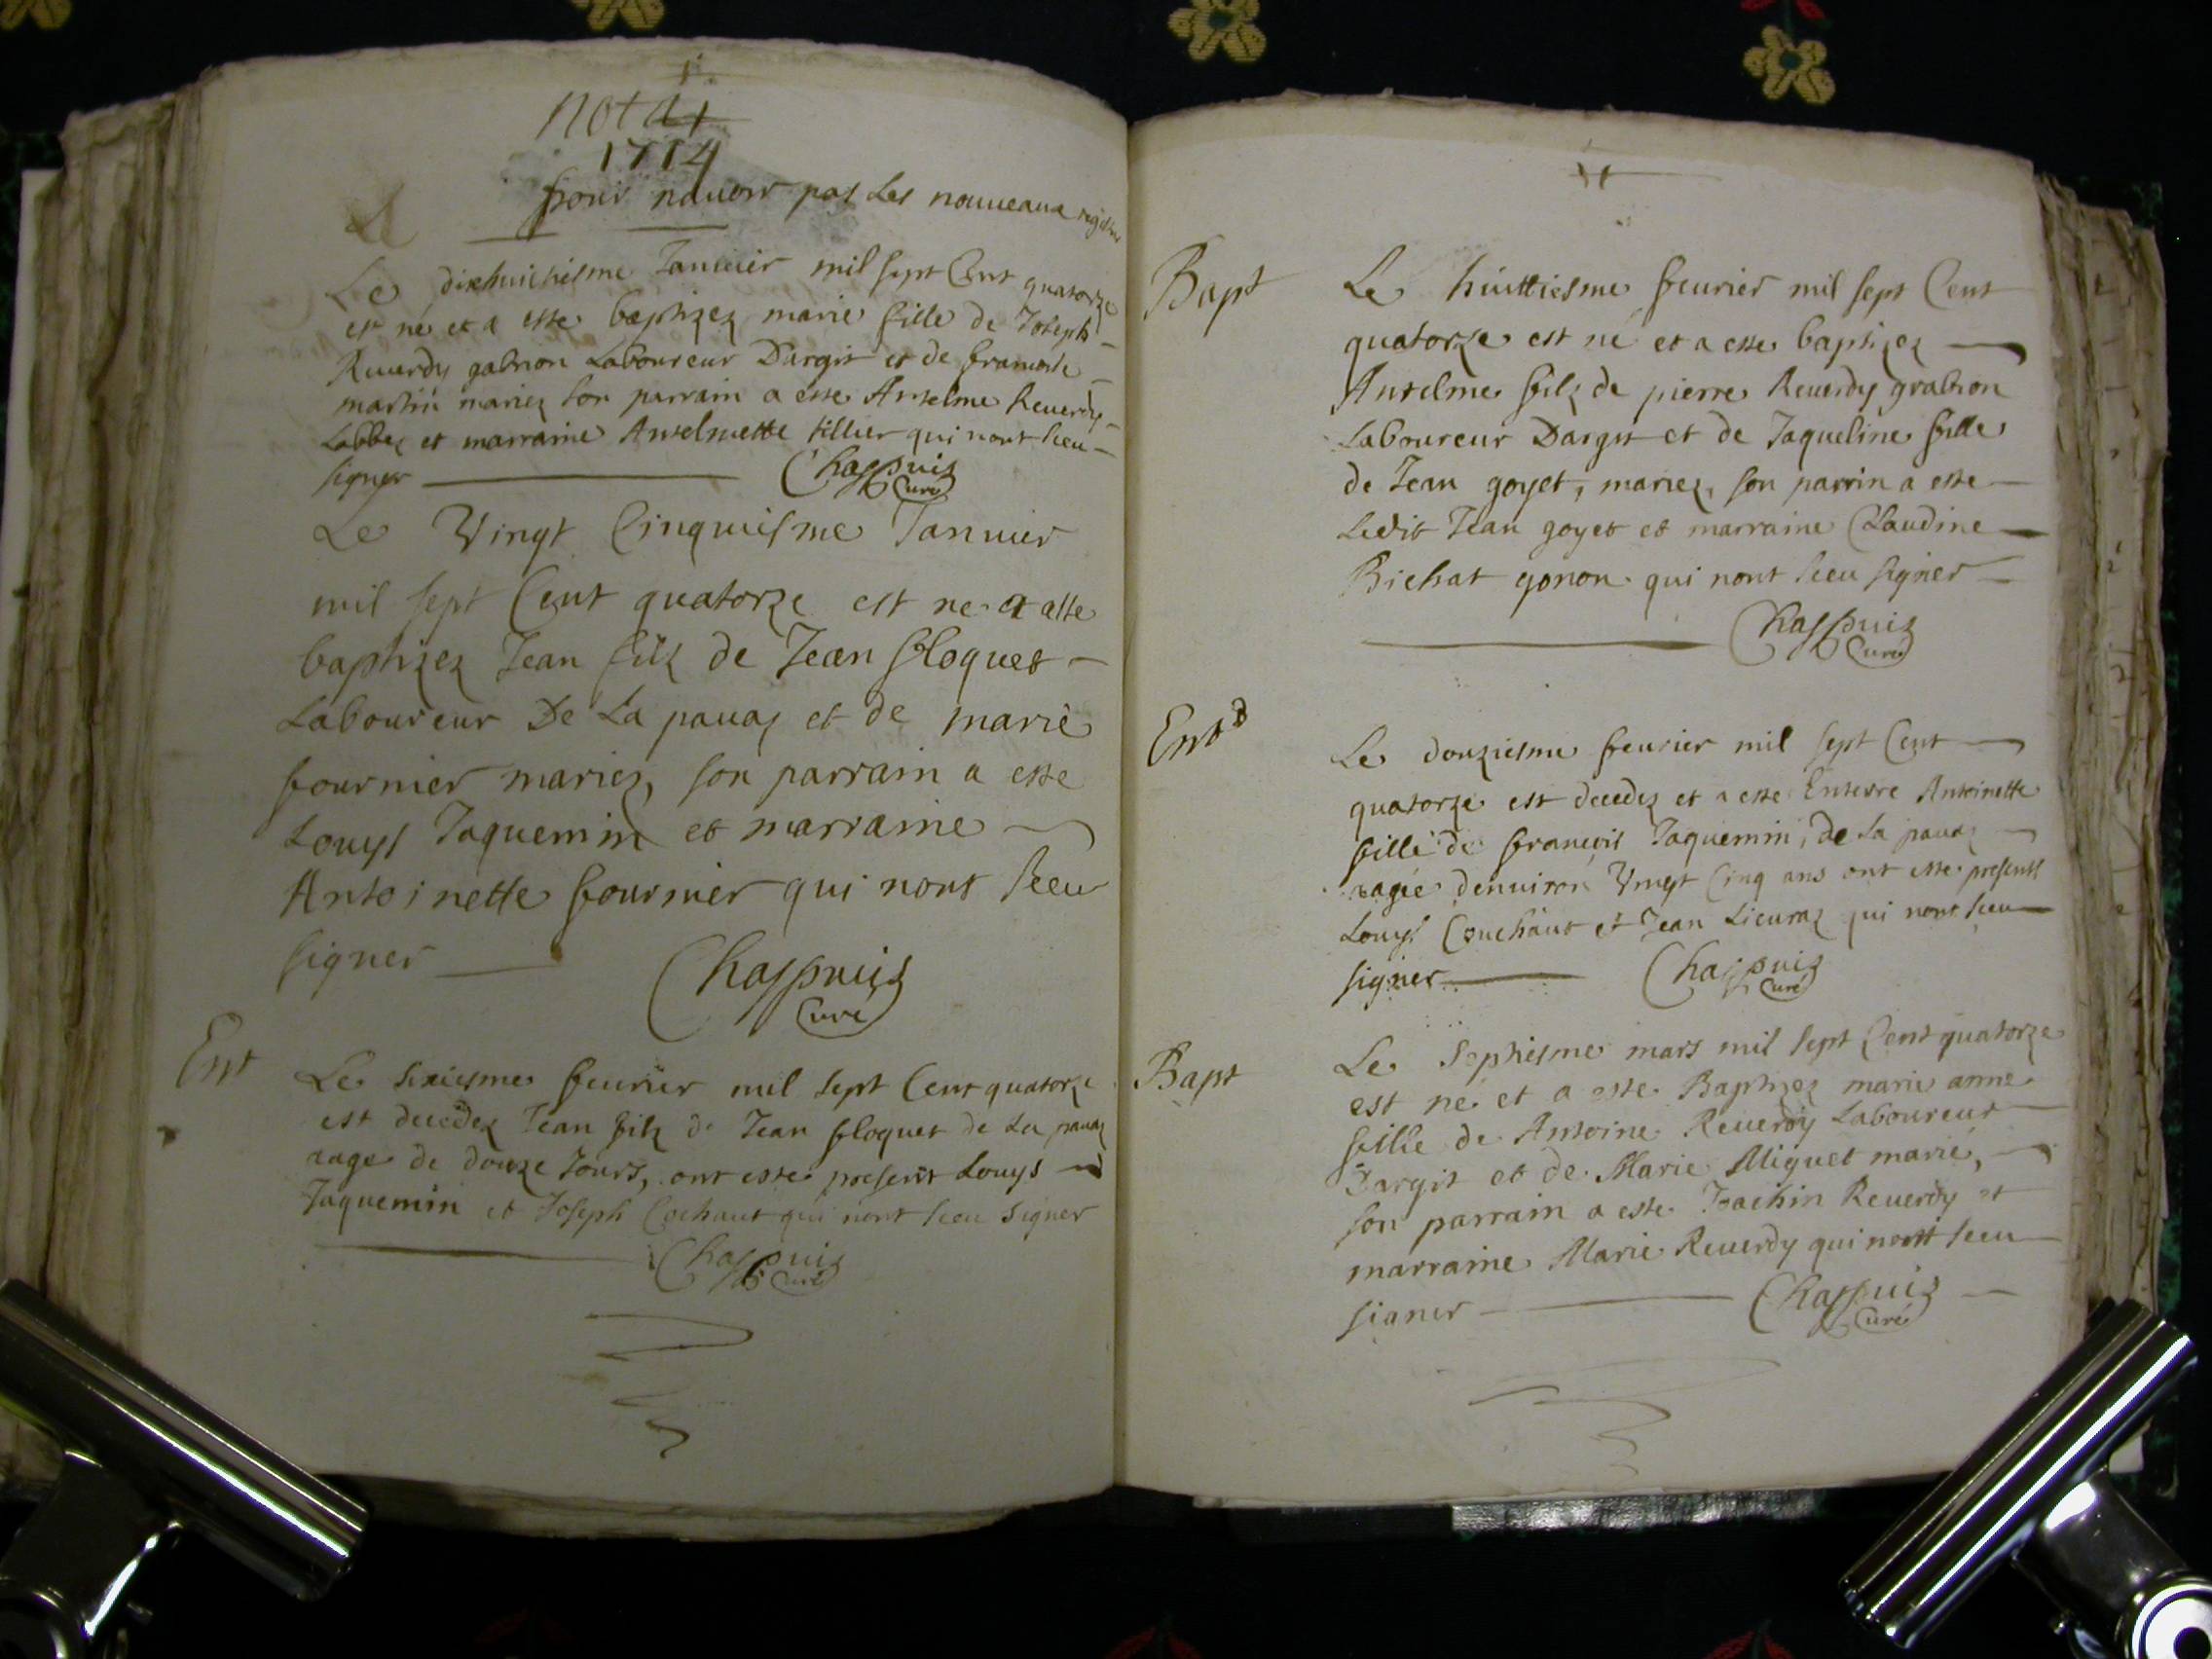 nota
1714
pour navoir pas les nouveaux registres
Le dixhuictiesme Januier mil sept Cent quatorze
est né et a esté baptizez marie fille de Joseph
Reuerdy gabrion Laboureur Dargit et de francoise
martin mariez son parrain a esté Anselme Reuerdy
Labbez et marraine Anselmette tillier qui nont sceu
signer Chappuis
Curé
Le Vingt Cinquiesme Januier
mil sept Cent quatorze est ne et a este
baptizez Jean filz de Jean floquet
Laboureur De La pauaz et de marie
fournier mariez, son parrain a este
Louys Jaquemin et marraine
Antoinette fournier qui nont sceu
signer Chappuis
Curé
Ent
Le sixiesme feurier mil sept Cent quatorze
est decedez Jean filz de Jean floquet de La pauaz
aage de douze Jours, ont esté present Louys
Jaquemin et Joseph Cochaut qui nont sceu signer
Chappuis
Curé
Bapt
Le huittiesme feurier mil sept Cent
quatorze est né et a este baptizez
Anselme filz de pierre Reuerdy grabion
Laboureur Dargit et de Jaqueline fille
de Jean goyet, mariez, son parrin a este
Ledit Jean goyet et marraine Claudine
Bichat gonon qui nont sceu signer
Chappuis
Curé
Ent
Le douziesme feurier mil sept Cent
quatorze est decedez et a este Enterre Antoinette
fille de francois Jaquemin, de La pauaz
aagée denuiron Vingt Cinq ans ont este presents
Louys Couchaut et Jean Lieuraz qui nont sceu
signer Chappuis
Curé
Bapt
Le Septiesme mars mil sept Cent quatorze
est né et a este Baptizez marie anne
fille de Antoine Reuerdy Laboureur
Dargit et de Marie Miguet marié,
son parrain a este Joachin Reuerdy et
marraine Marie Reuerdy qui nont sceu
signer Chappuis
Curé